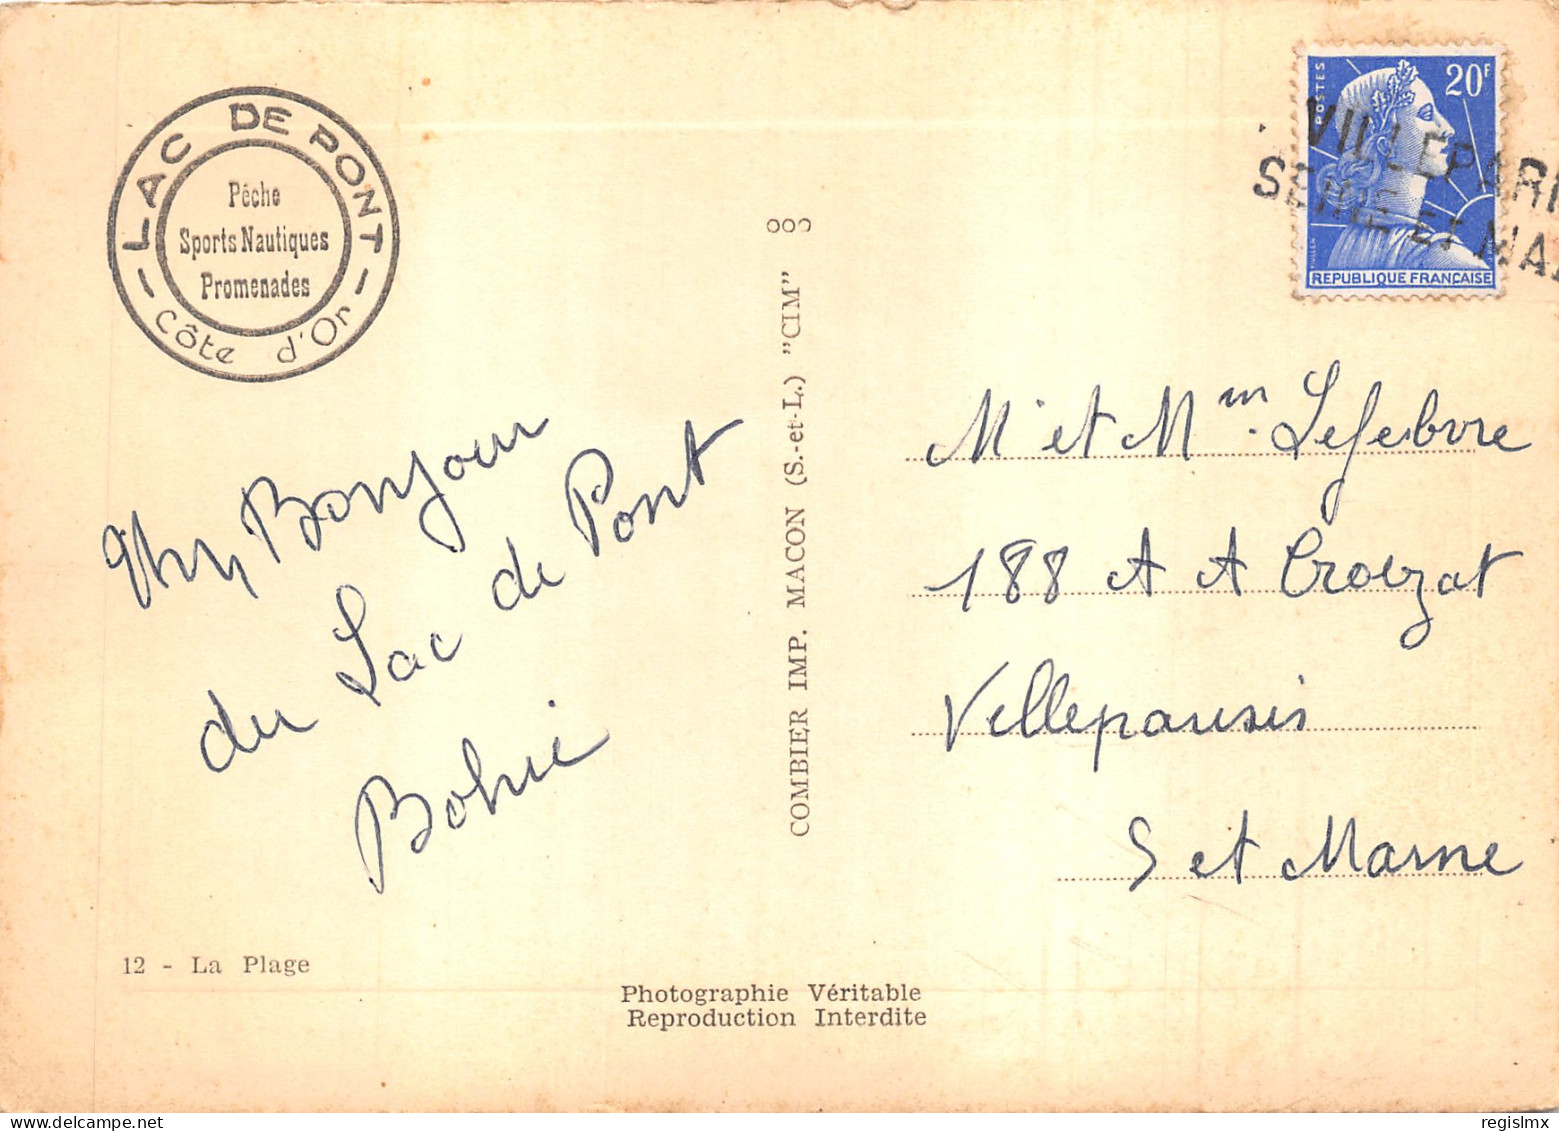 LAC DE PONT
Pêche
Sports Nautiques
Promenades
Côte d'Or
POSTES
20F
REPUBLIQUE FRANÇAISE
VILLEPARI
SEINE ET MA
Bonjour
du Lac de Pont
COMBIER IMP. MACON (S.-et-L.) "CIM"
Mr et Mm. Lefebvre
188 A A Croizat
Villeparisis
S et Marne
12 - La Plage
Photographie Véritable
Reproduction Interdite
regislmx